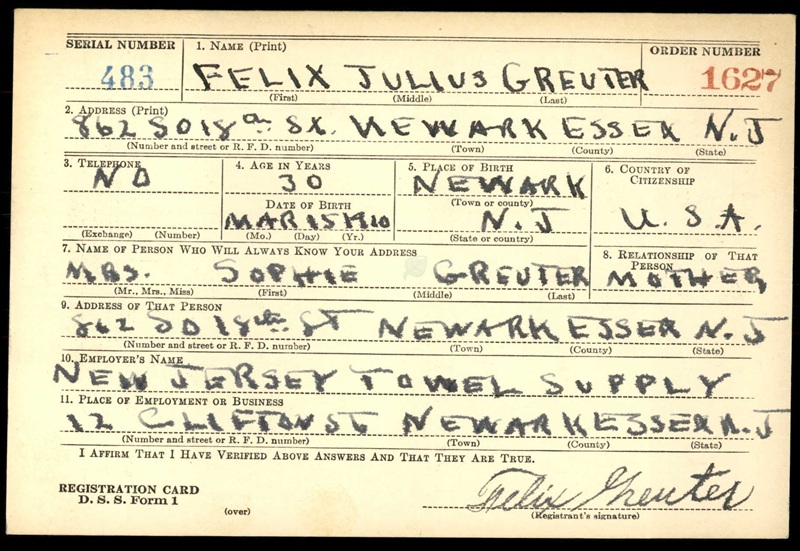 SERIAL NUMBER 1. NAME (Print) ORDER NUMBER
483 FELIX JULIUS GREUTER 1627
(First) (Middle) (Last)
2. ADDRESS (Print)
862 SO 18th St. NEWARK ESSEX N.J
(Number and street or R. F. D. number) (Town) (County) (State)
3. TELEPHONE 4. AGE IN YEARS 5. PLACE OF BIRTH 6. COUNTRY OF CITIZENSHIP
NO 30 NEWARK
DATE OF BIRTH (Town or county)
MAR 15 1910 N.J U.S.A.
(Exchange) (Number) (Mo.) (Day) (Yr.) (State or country)
7. NAME OF PERSON WHO WILL ALWAYS KNOW YOUR ADDRESS 8. RELATIONSHIP OF THAT PERSON
MRS. SOPHIE GREUTER MOTHER
(Mr., Mrs., Miss) (First) (Middle) (Last)
9. ADDRESS OF THAT PERSON
862 SO 18th ST NEWARK ESSEX N.J
(Number and street or R. F. D. number) (Town) (County) (State)
10. EMPLOYER'S NAME
NEW JERSEY TOWEL SUPPLY
11. PLACE OF EMPLOYMENT OR BUSINESS
12 CLIFTON ST NEWARK ESSEX N.J
(Number and street or R. F. D. number) (Town) (County) (State)
I AFFIRM THAT I HAVE VERIFIED ABOVE ANSWERS AND THAT THEY ARE TRUE.
REGISTRATION CARD
D. S. S. Form 1 Felix Greuter
(over) (Registrant's signature)